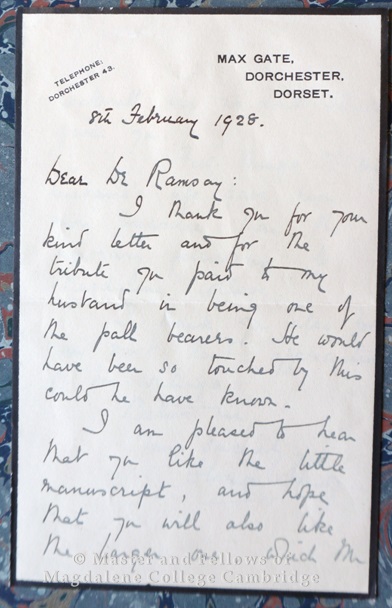 TELEPHONE:
DORCHESTER 43.
MAX GATE,
DORCHESTER,
DORSET.
8th February 1928.
Dear Dr Ramsay:
I thank you for your
kind letter and for the
tribute you paid to my
husband in being one of
the pall bearers. He would
have been so touched by this
could he have known.
I am pleased to hear
that you like the little
manuscript, and hope
that you will also like
the larger one which Mr
© Master and Fellows of
Magdalene College Cambridge